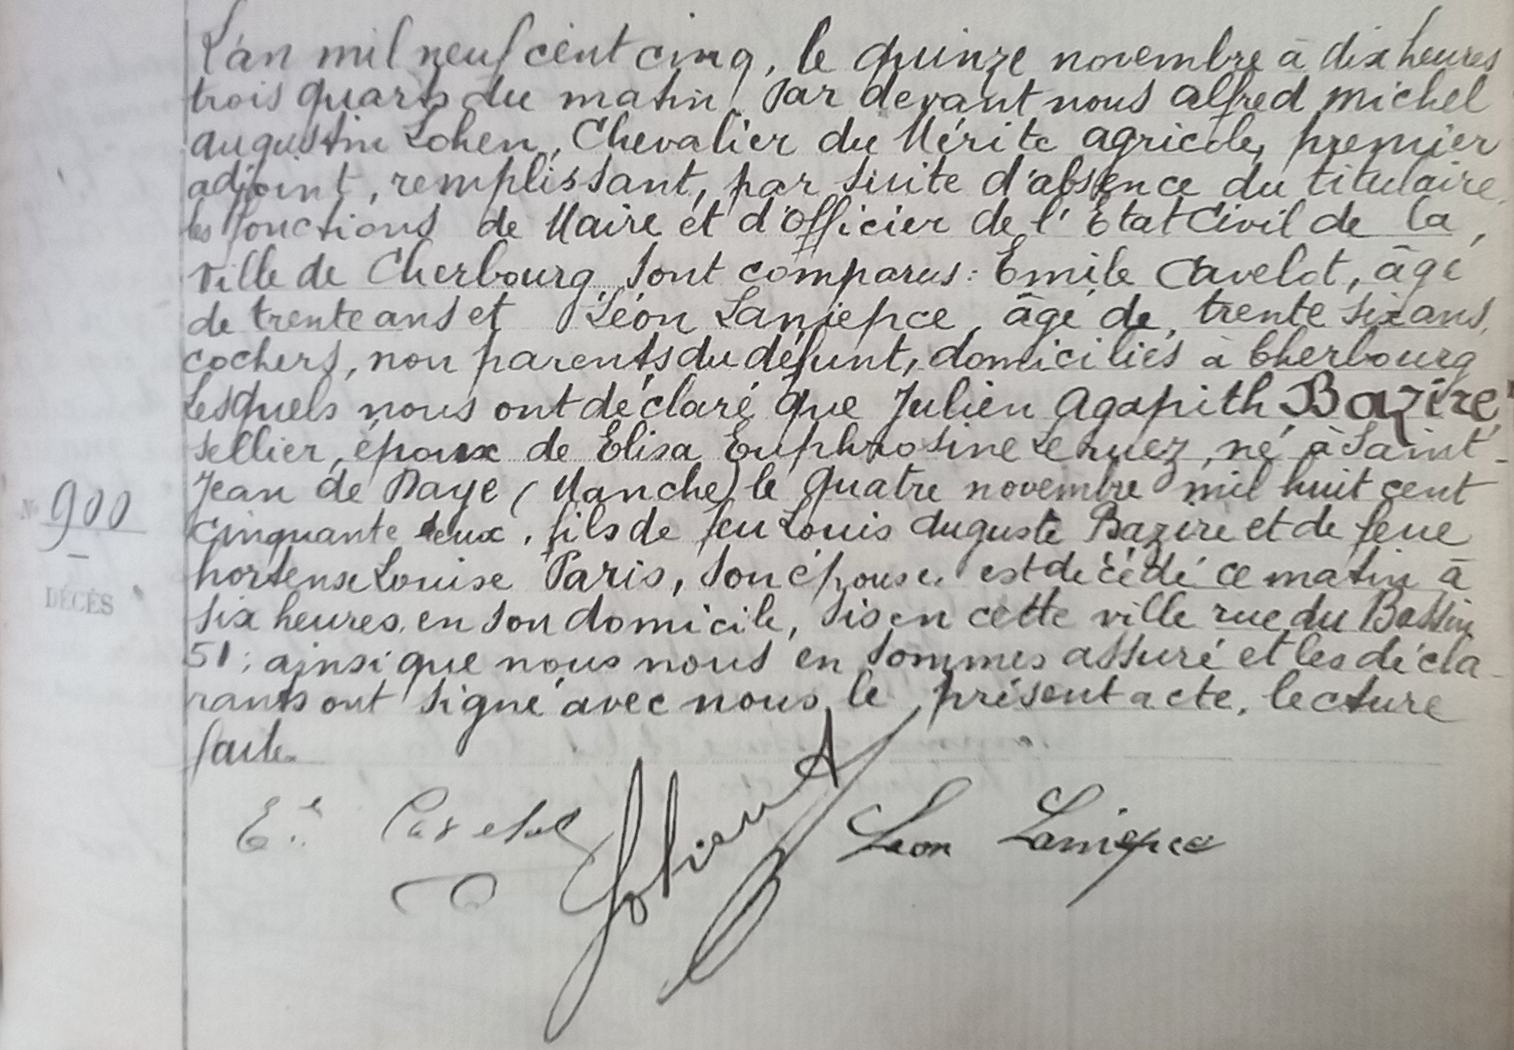 L'an mil neuf cent cinq, le quinze novembre à dix heures
trois quarts du matin Par devant nous alfred michel
augustin Lohen, Chevalier du Mérite agricole, premier
adjoint, remplissant, par suite d'absence du titulaire,
les fonctions de Maire et d'Officier de l'Etat Civil de la
Ville de Cherbourg, sont comparus : Emile Cavelot, âgé
de trente ans et Léon Laniepce, âgé de trente six ans,
cochers, non parents du défunt, domiciliés à Cherbourg
Lesquels nous ont déclaré que Julien Agapith Bazire
sellier, époux de Elisa Euphrosine Leruez, né à Saint-
Jean de Daye (Manche) le quatre novembre mil huit cent
N° 900
cinquante deux, fils de feu Louis Auguste Bazire et de feue
hortense Louise Paris, son épouse est décédé ce matin à
DÉCÈS
six heures, en son domicile, sis en cette ville rue du Bassin
51 ; ainsi que nous nous en sommes assuré et les décla-
rants ont signé avec nous le présent acte, lecture
faite.
Léon Laniepce